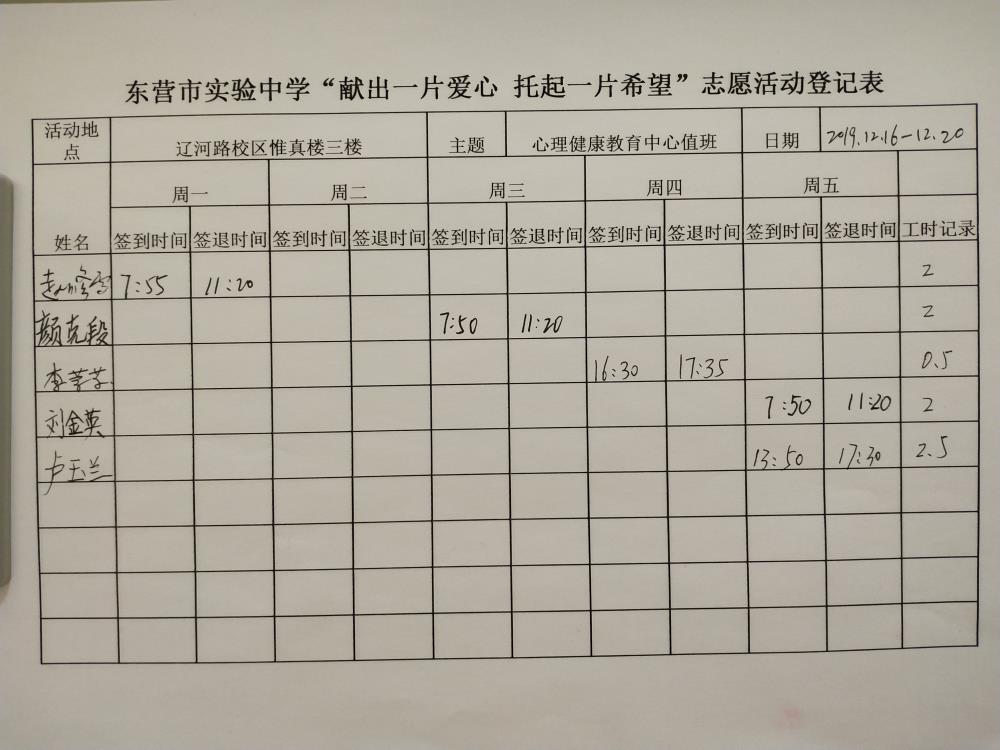 东营市实验中学“献出一片爱心 托起一片希望”志愿活动登记表
活动地点 辽河路校区惟真楼三楼 主题 心理健康教育中心值班 日期 2019.12.16-12.20
姓名 周一 周二 周三 周四 周五
签到时间 签退时间 签到时间 签退时间 签到时间 签退时间 签到时间 签退时间 签到时间 签退时间 工时记录
7:55 11:20 2
颜克段 7:50 11:20 2
16:30 17:35 0.5
刘金英 7:50 11:20 2
卢玉兰 13:50 17:30 2.5